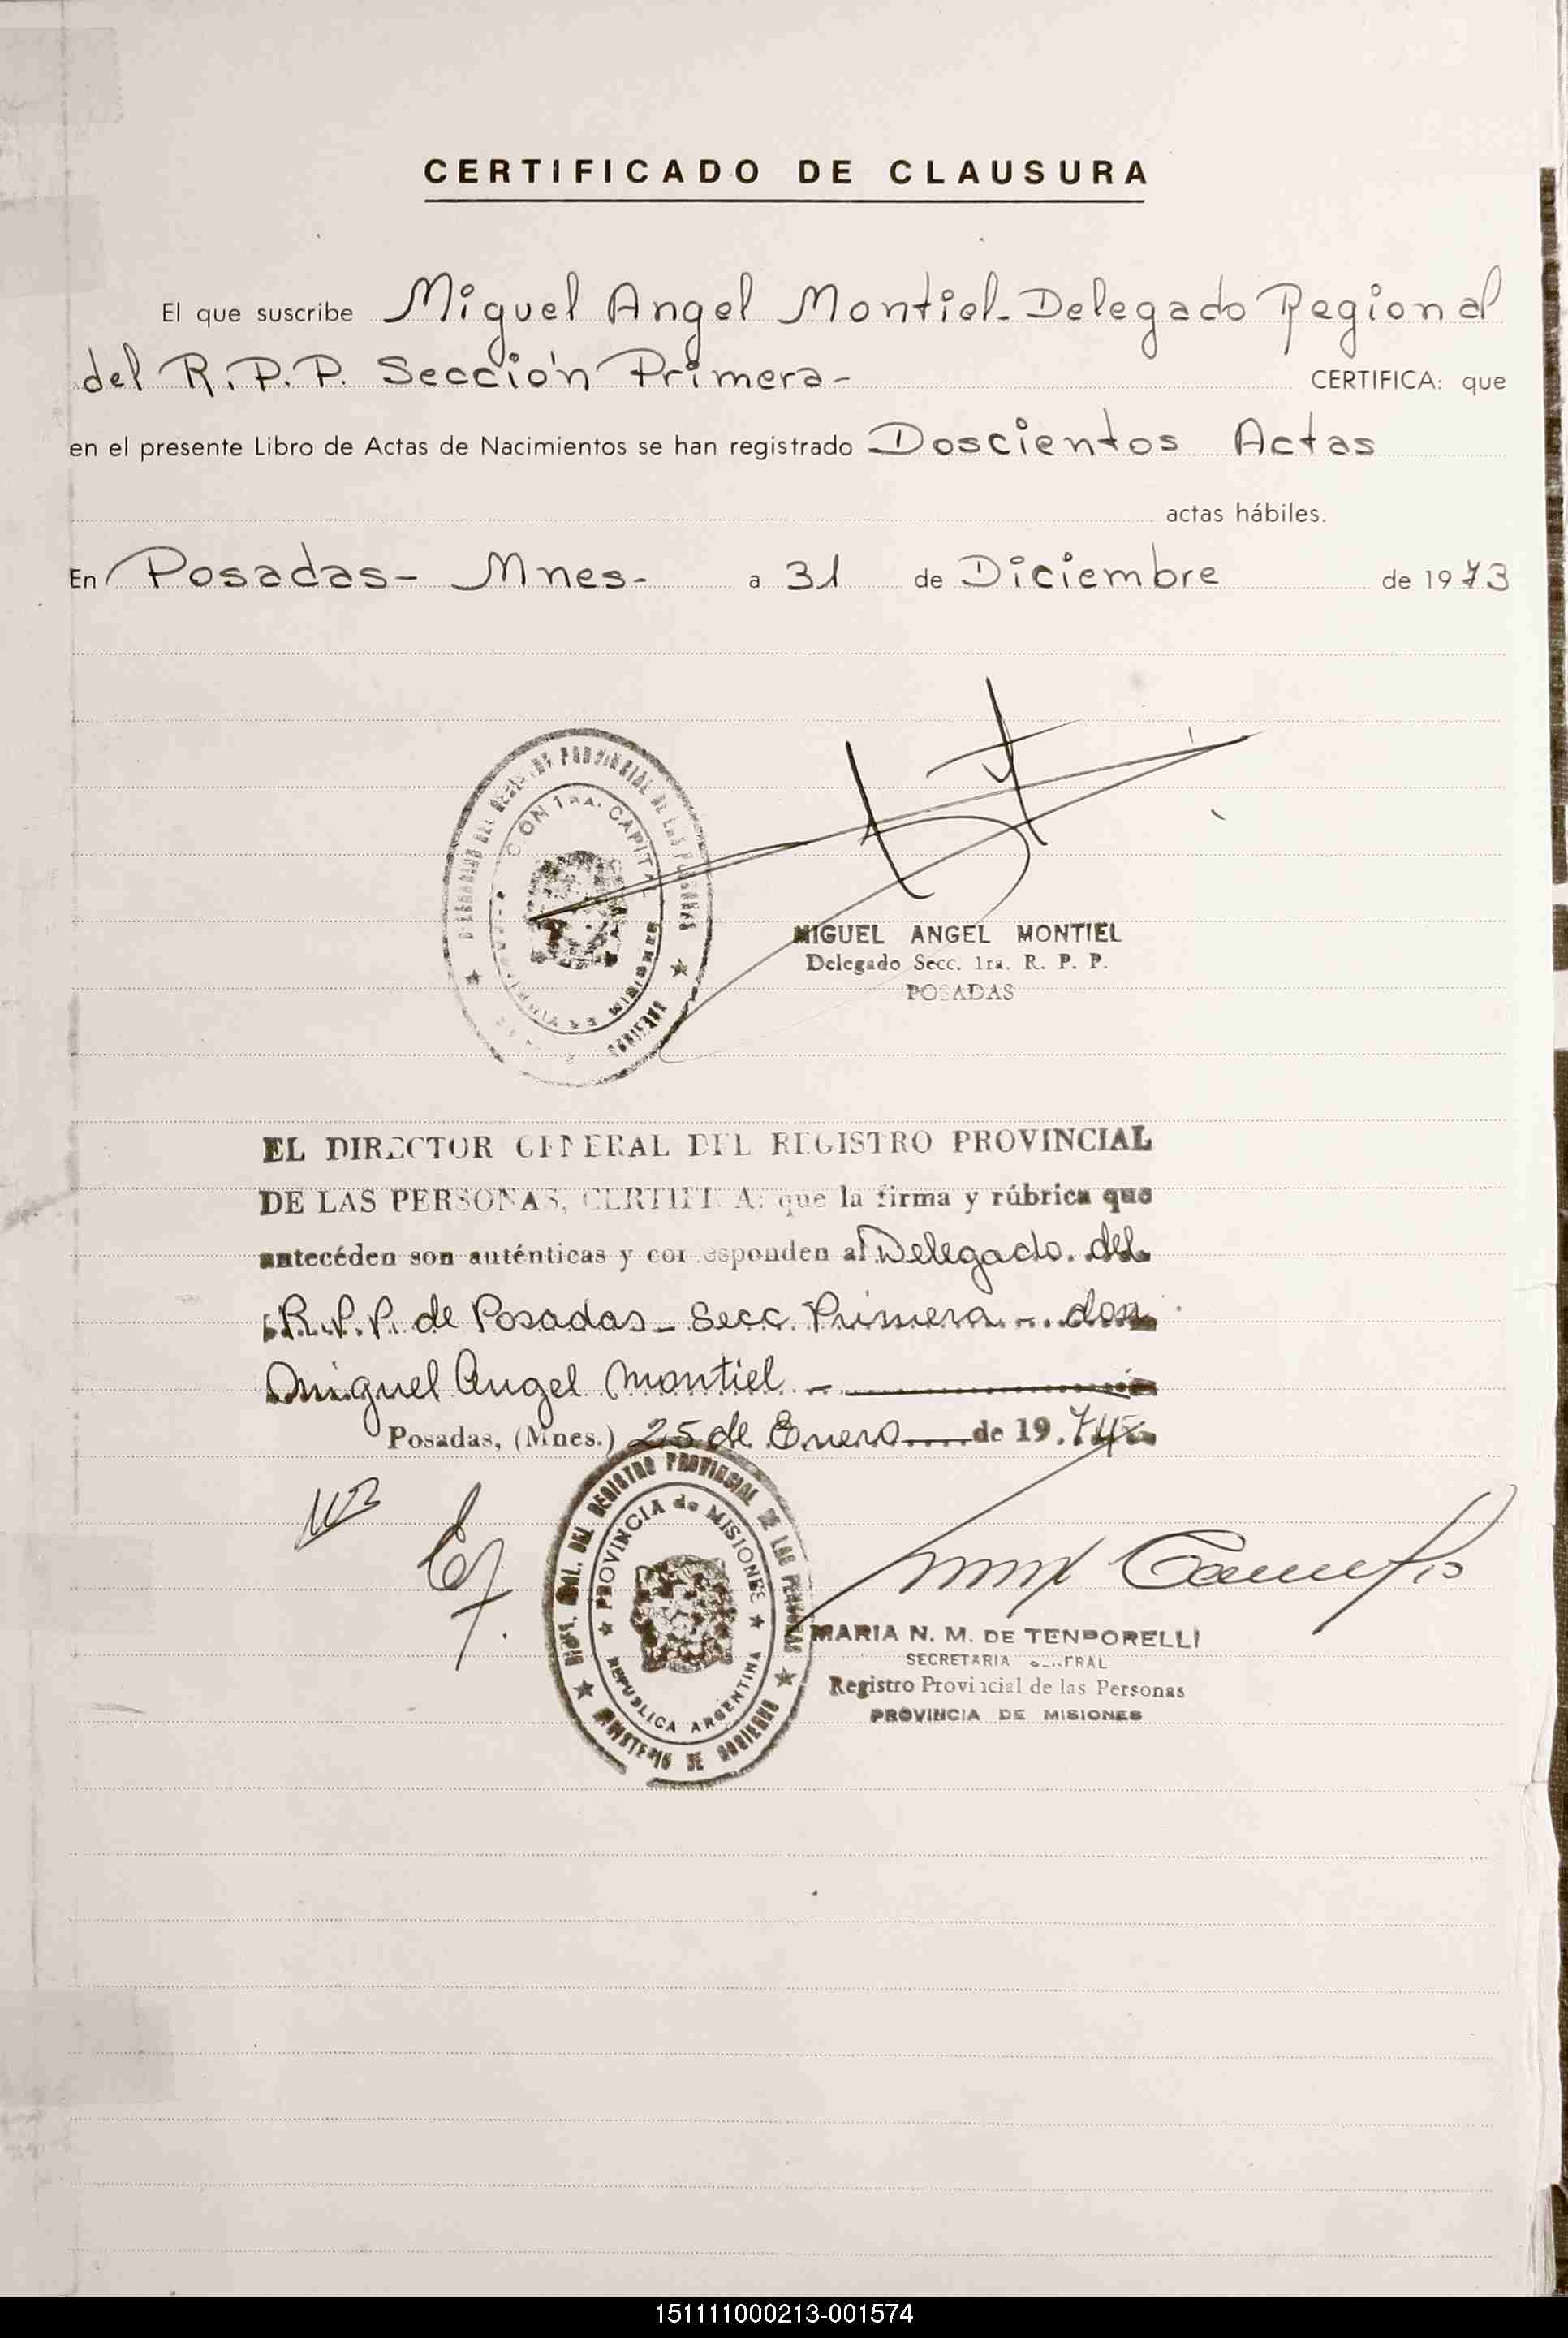 CERTIFICADO DE CLAUSURA
El que suscribe Miguel Angel Montiel - Delegado Regional
del R.P.P. Sección Primera - CERTIFICA: que
en el presente Libro de Actas de Nacimientos se han registrado Doscientos Actas
actas hábiles.
En Posadas - Mnes - a 31 de Diciembre de 1973
PROVINCIAL DE LAS PERSONAS
CION 1ra. CAPITAL
MISIONES
MIGUEL ANGEL MONTIEL
Delegado Secc. 1ra. R. P. P.
POSADAS
EL DIRECTOR GENERAL DEL REGISTRO PROVINCIAL
DE LAS PERSONAS, CERTIFICA: que la firma y rúbrica que
antecéden son auténticas y corresponden al Delegado del
R.P.P. de Posadas - Secc. Primera - don
Miguel Angel Montiel -
Posadas, (Mnes.) 25 de Enero de 1974
DEL REGISTRO PROVINCIAL DE LAS PERSONAS
PROVINCIA de MISIONES
REPUBLICA ARGENTINA
MINISTERIO DE GOBIERNO
MARIA N. M. DE TENPORELLI
SECRETARIA GENERAL
Registro Provincial de las Personas
PROVINCIA DE MISIONES
151111000213-001574